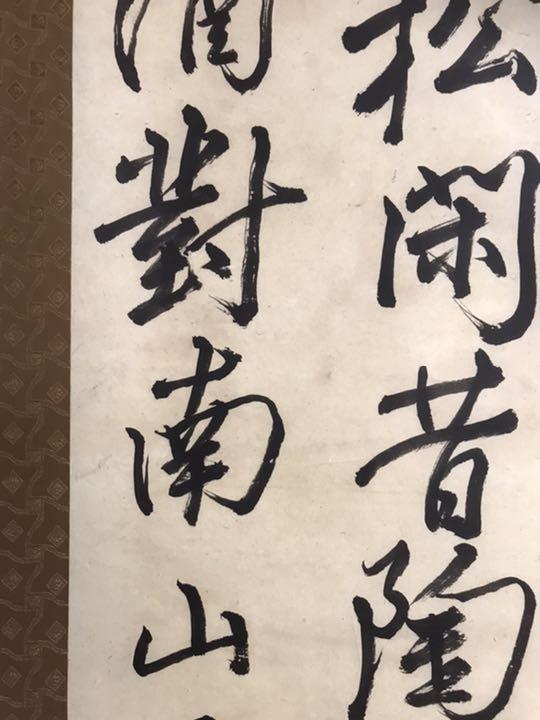 松閑昔陶
酒對南山